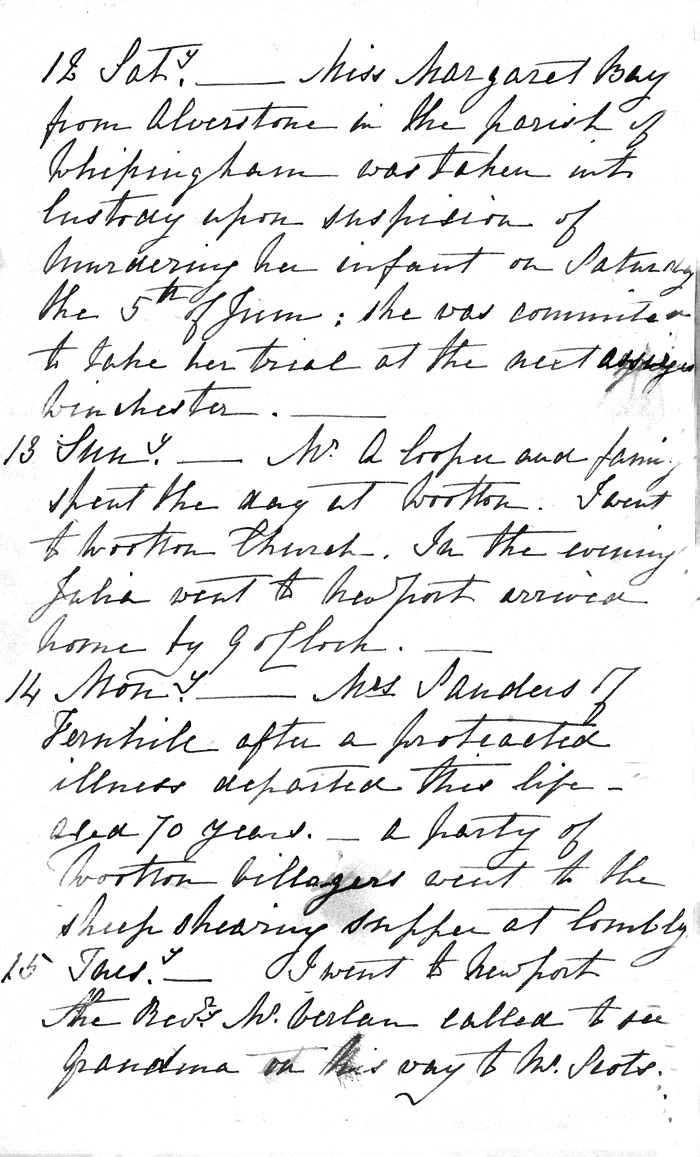 12 Saty. —— Miss Margaret Bay
from Alverstone in the parish of
Whipingham was taken into
Custody upon suspision of
Murdering her infant on Saturday
the 5th of June ; she was commited
to take her trial at the next assizes
Winchester . ——
13 Suny. — Mr A Cooper and family
spent the day at Wootton . I went
to Wootton Church . In the evening
Julia went to Newport arrived
home by 9 oClock . —
14 Mony. —— Mrs Sanders of
Fernhill after a protracted
illness departed this life –
aged 70 years. – a party of
Wootton Villagers went to the
sheep shearing supper at Combly
15 Tuesy. — I went to Newport
the Revd. Mr. Verlan called to see
Grandma on his way to Mr. Scots.